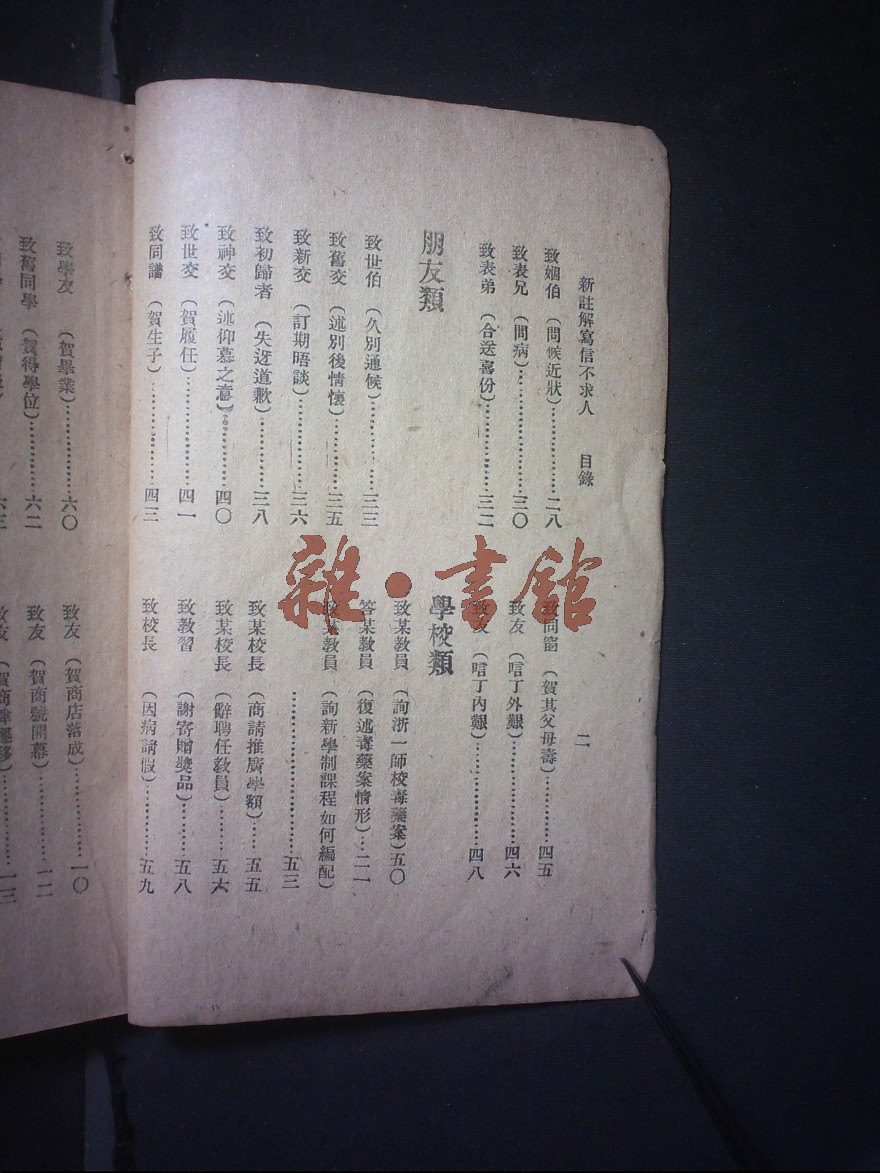 新註解寫信不求人 目錄 二
致姻伯（問候近狀）………………二八
致表兄（問病）………………三〇
致表弟（合送喜份）………………三二
朋友類
致世伯（久別通候）………………三三
致舊交（述別後情懷）………………三五
致新交（訂期晤談）………………三六
致初歸者（失迓道歉）………………三八
致神交（述仰慕之意）………………四〇
致世交（賀履任）………………四一
致同譜（賀生子）………………四三
致同窗（賀其父母壽）………………四五
致友（唁丁外艱）………………四六
致友（唁丁內艱）………………四八
學校類
致某教員（詢浙一師校毒藥案）五〇
答某教員（復述毒藥案情形）…二一
致某教員（詢新學制課程如何編配）
………………五三
致某校長（商請推廣學額）……五五
致某校長（辭聘任教員）………五六
致教習（謝寄贈獎品）………五八
致校長（因病請假）…………五九
致學友（賀畢業）………………六〇
致舊同學（賀得學位）…………六二
致友（賀商店落成）……………一〇
致友（賀商號開幕）……………一二
雜·書館